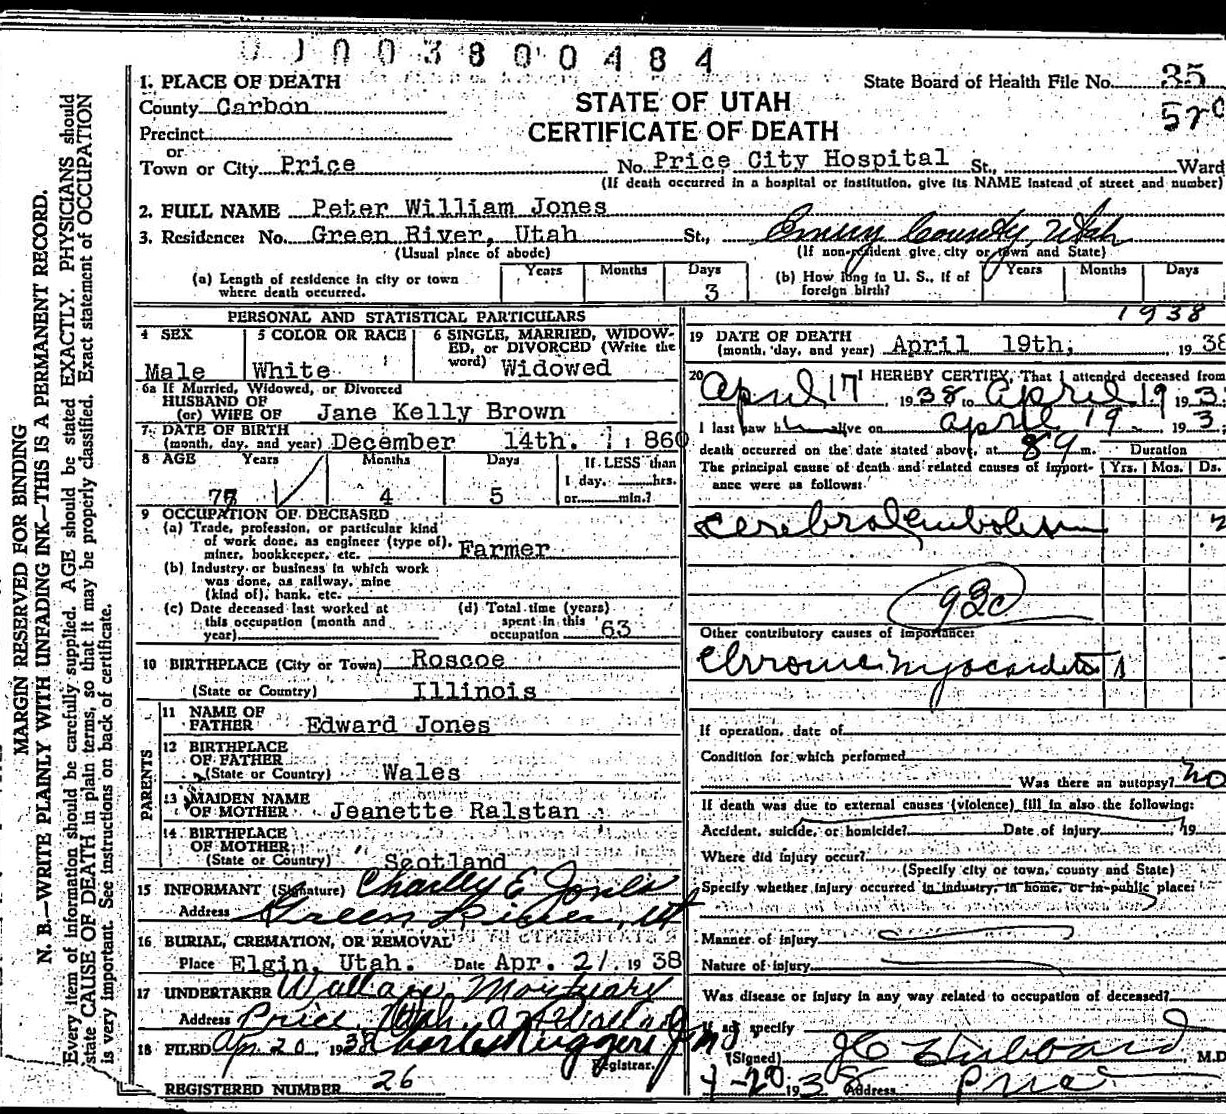 0 1 0 0 3 8 0 0 4 8 4
MARGIN RESERVED FOR BINDING
N. B.—WRITE PLAINLY WITH UNFADING INK—THIS IS A PERMANENT RECORD.
Every item of information should be carefully supplied. AGE should be stated EXACTLY. PHYSICIANS should
state CAUSE OF DEATH in plain terms, so that it may be properly classified. Exact statement of OCCUPATION
is very important. See instructions on back of certificate.
1. PLACE OF DEATH
State Board of Health File No. 35
County Carbon
STATE OF UTAH
Precinct
CERTIFICATE OF DEATH
or
Town or City Price No. Price City Hospital St., Ward
(If death occurred in a hospital or institution, give its NAME instead of street and number)
2. FULL NAME Peter William Jones
3. Residence: No. Green River, Utah St., Emery County, Utah
(Usual place of abode) (If non-resident give city or town and State)
(a) Length of residence in city or town where death occurred. Years Months Days 3
(b) How long in U. S., if of foreign birth? Years Months Days
PERSONAL AND STATISTICAL PARTICULARS
1938
4 SEX Male
5 COLOR OR RACE White
6 SINGLE, MARRIED, WIDOWED, or DIVORCED (Write the word) Widowed
6a If Married, Widowed, or Divorced
HUSBAND OF
(or) WIFE OF Jane Kelly Brown
7. DATE OF BIRTH
(month, day, and year) December 14th. 1860
8 AGE Years Months Days If LESS than
1 day, hrs.
77 4 5 or min.?
9 OCCUPATION OF DECEASED
(a) Trade, profession, or particular kind
of work done, as engineer (type of),
miner, bookkeeper, etc. Farmer
(b) Industry or business in which work
was done, as railway, mine
(kind of), bank, etc.
(c) Date deceased last worked at
this occupation (month and
year)
(d) Total time (years)
spent in this
occupation 63
10 BIRTHPLACE (City or Town) Roscoe
(State or Country) Illinois
PARENTS
11 NAME OF
FATHER Edward Jones
12 BIRTHPLACE
OF FATHER
(State or Country) Wales
13 MAIDEN NAME
OF MOTHER Jeanette Ralstan
14 BIRTHPLACE
OF MOTHER
(State or Country) Scotland
15 INFORMANT (Signature) Charley E Jones
Address Green River, Ut
16 BURIAL, CREMATION, OR REMOVAL
Place Elgin, Utah. Date Apr. 21. 1938
17 UNDERTAKER Wallace Mortuary
Address Price, Utah,
18 FILED Apr. 20 1938 Charles Ruggeri Jr MD
Registrar.
REGISTERED NUMBER 26
19 DATE OF DEATH
(month, day, and year) April 19th, 1938
20 I HEREBY CERTIFY, That I attended deceased from
April 17 1938 to April 19 193
I last saw h alive on April 19 193
death occurred on the date stated above, at m. Duration
The principal cause of death and related causes of importance were as follows: Yrs. Mos. Ds.
Cerebral embolism
Other contributory causes of importance:
Chronic myocarditis
If operation, date of
Condition for which performed
Was there an autopsy? No
If death was due to external causes (violence) fill in also the following:
Accident, suicide, or homicide? Date of injury 19
Where did injury occur?
(Specify city or town, county and State)
Specify whether injury occurred in industry, in home, or in public place:
Manner of injury
Nature of injury
Was disease or injury in any way related to occupation of deceased?
If so, specify
(Signed) J C Hubbard M.D
4-20 1938 Address Price